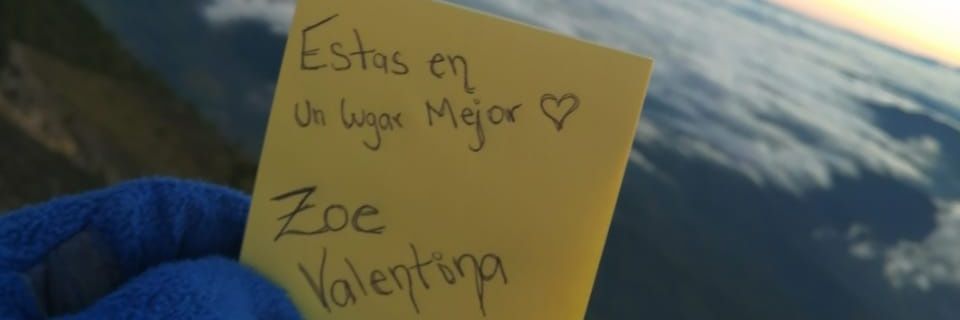 Estas en
Un lugar Mejor ♡
Zoe
Valentina